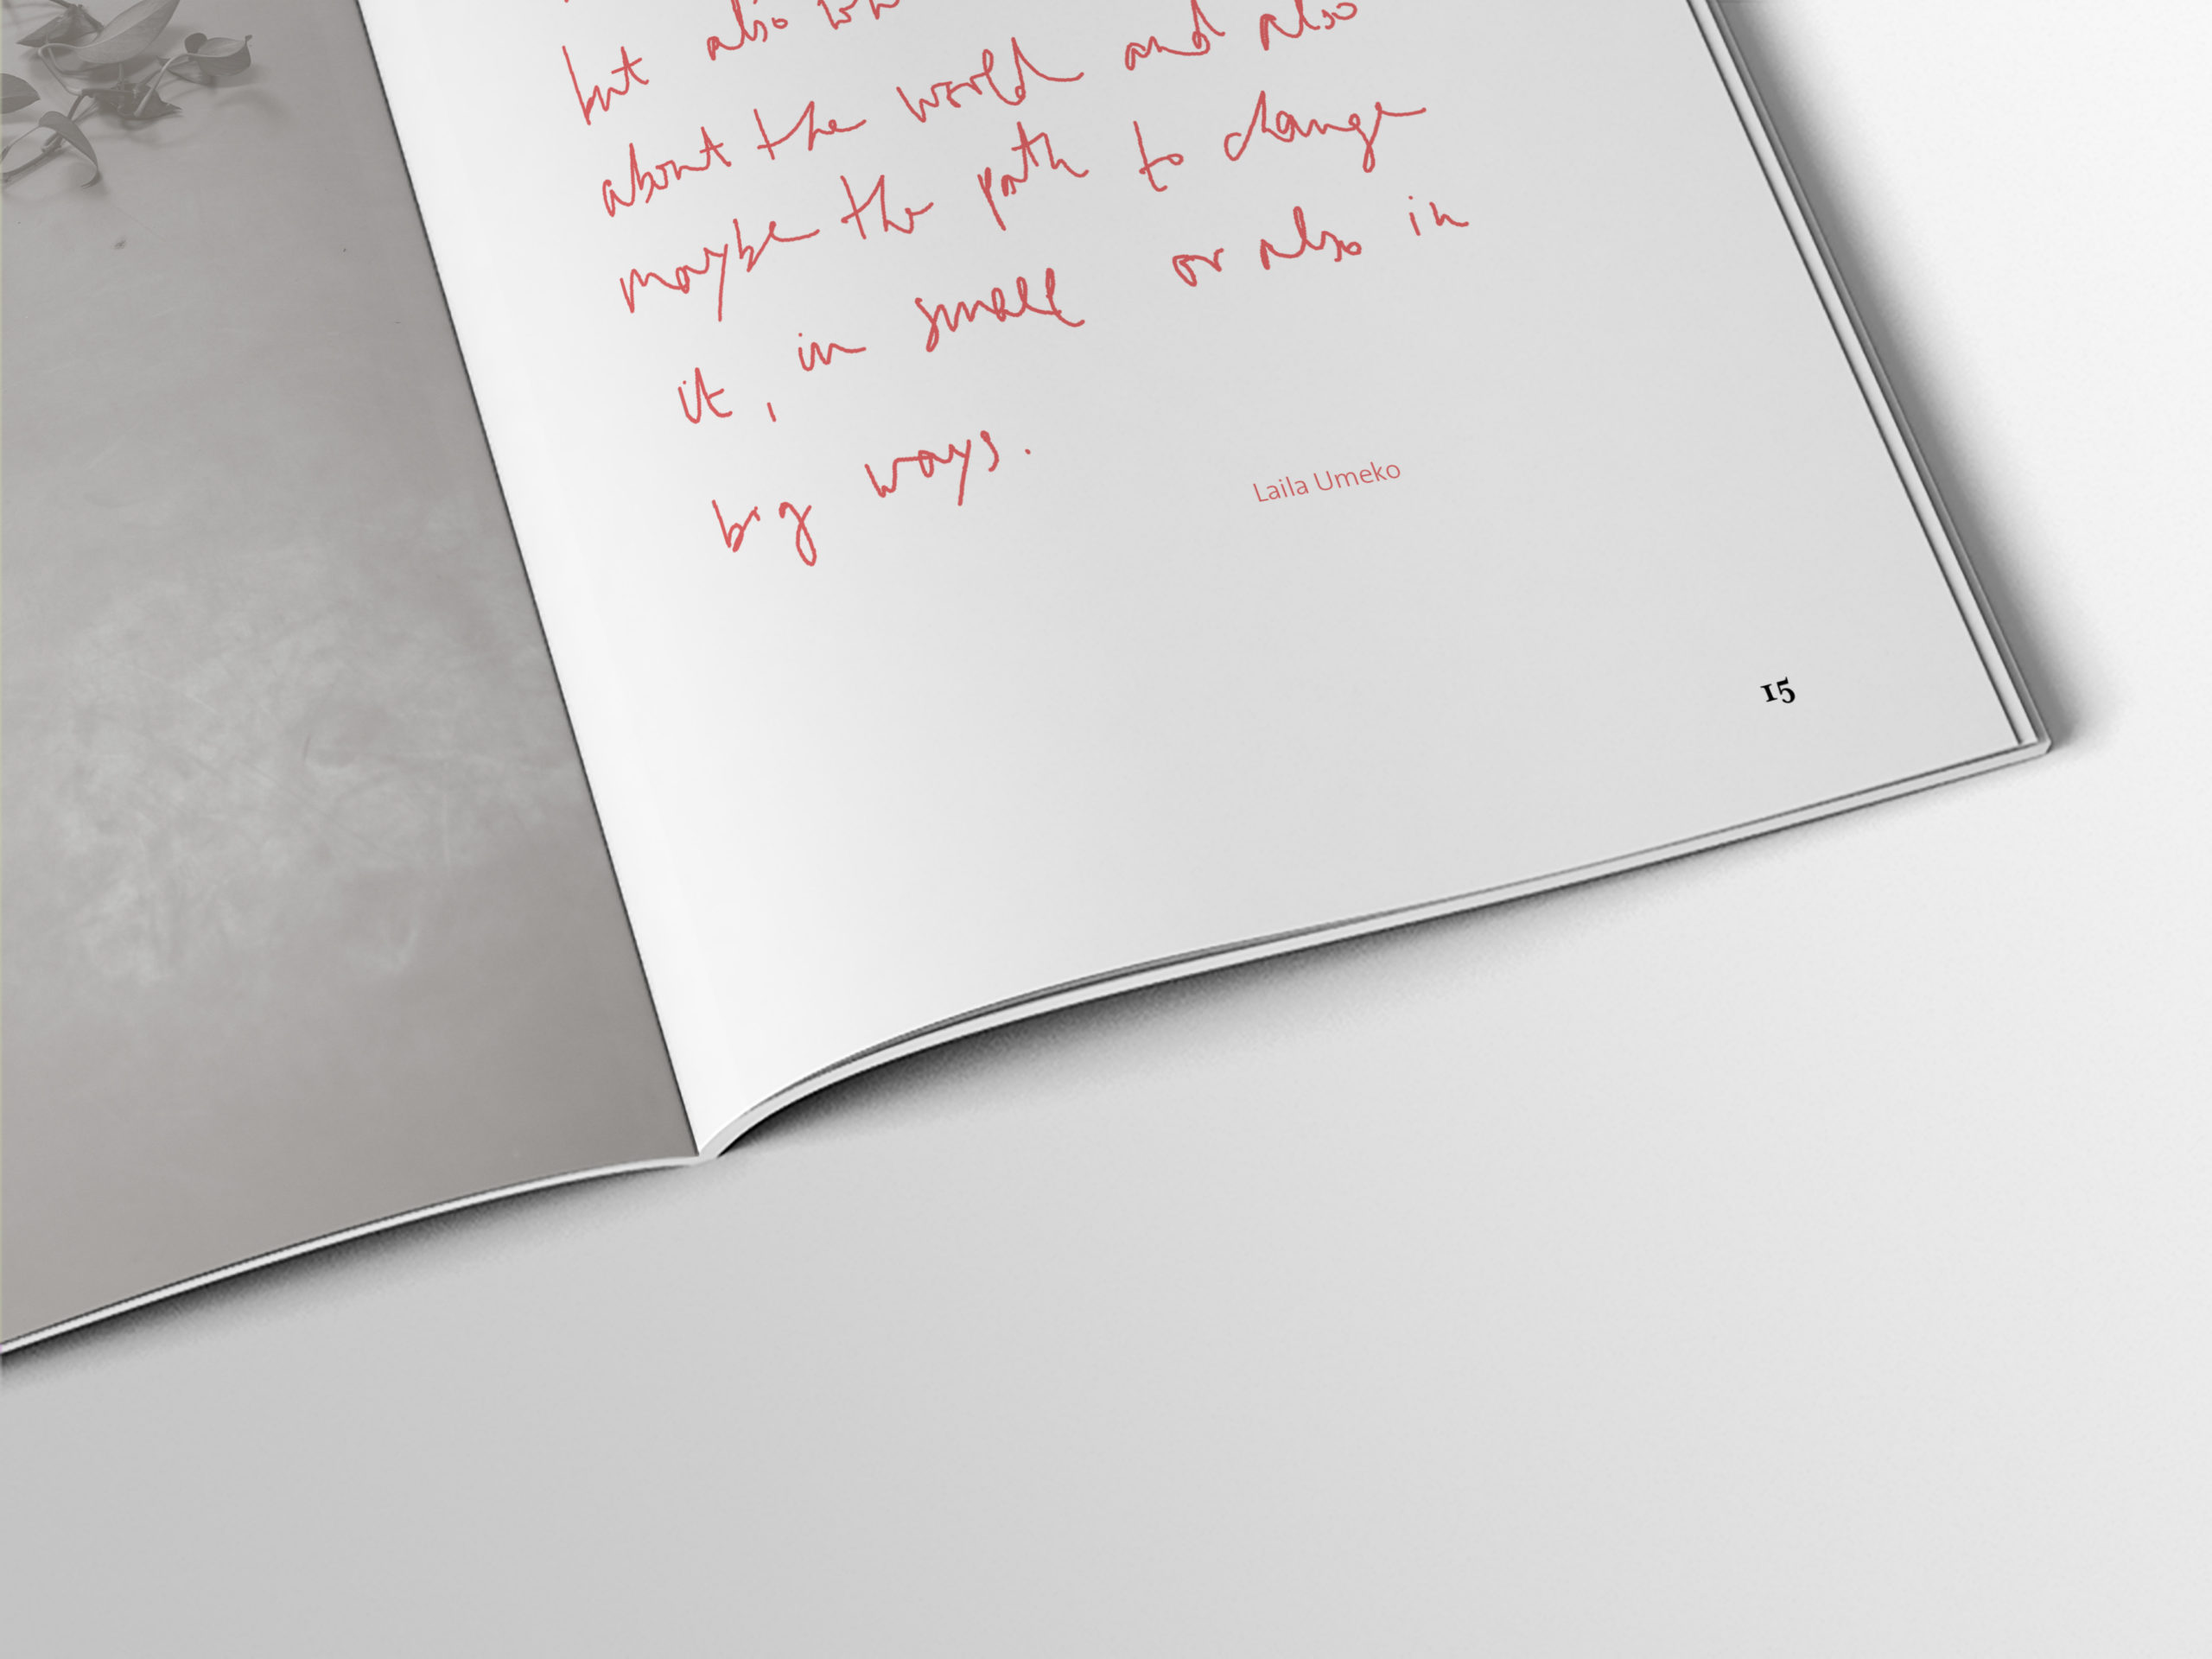 but also
about the world and also
maybe the path to change
it, in small or also in
big ways.
Laila Umeko
15